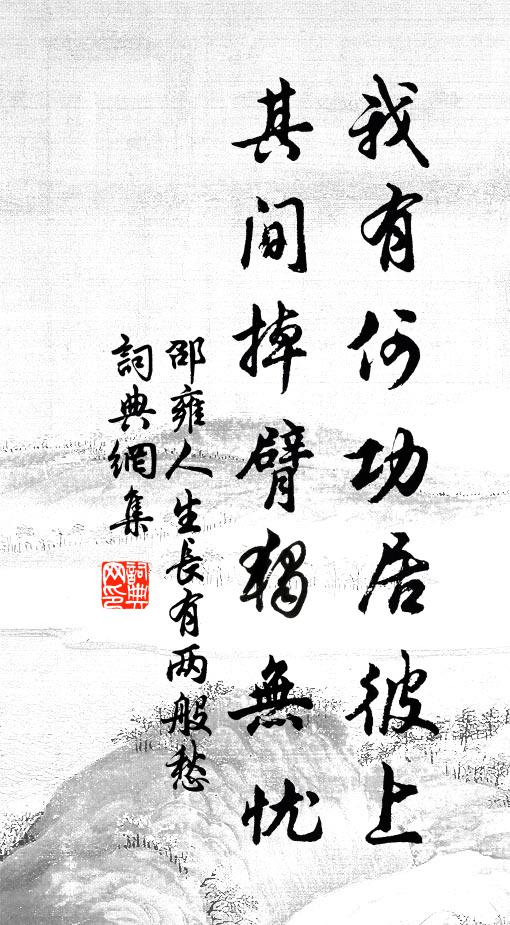 我有何功居彼上
其间掉臂獨無忧
邵雍人生長有两般愁
詞典網集
詞典网印